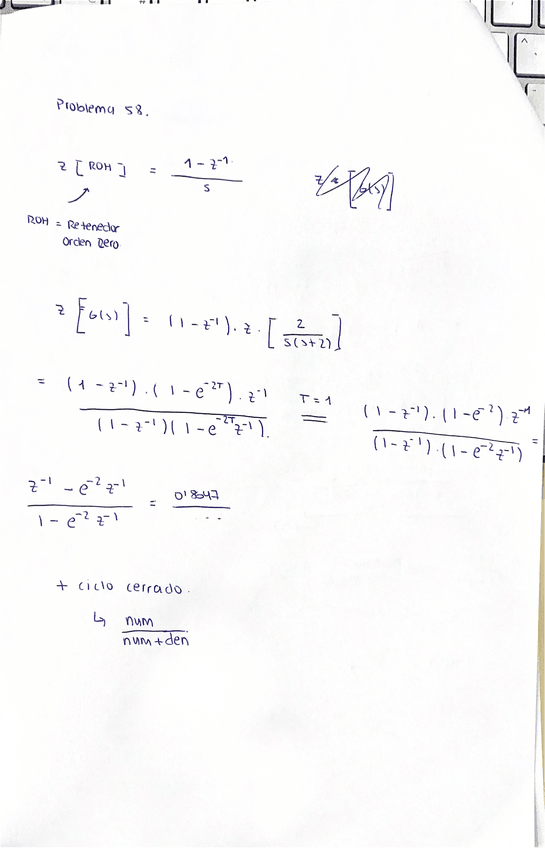 Problema 58.
z [ ROH ] = (1 - z⁻¹) / s
ROH = Retenedor
Orden Zero
z [G(s)] = (1 - z⁻¹) . z . [ 2 / s(s+2) ]
= (1 - z⁻¹) . (1 - e⁻²ᵀ) . z⁻¹ / (1 - z⁻¹)(1 - e⁻²ᵀz⁻¹). T = 1 = (1 - z⁻¹) . (1 - e⁻²) z⁻¹ / (1 - z⁻¹) . (1 - e⁻²z⁻¹) =
z⁻¹ - e⁻² z⁻¹ / 1 - e⁻² z⁻¹ = 0'8647 / ...
+ ciclo cerrado.
↳ num / num + den